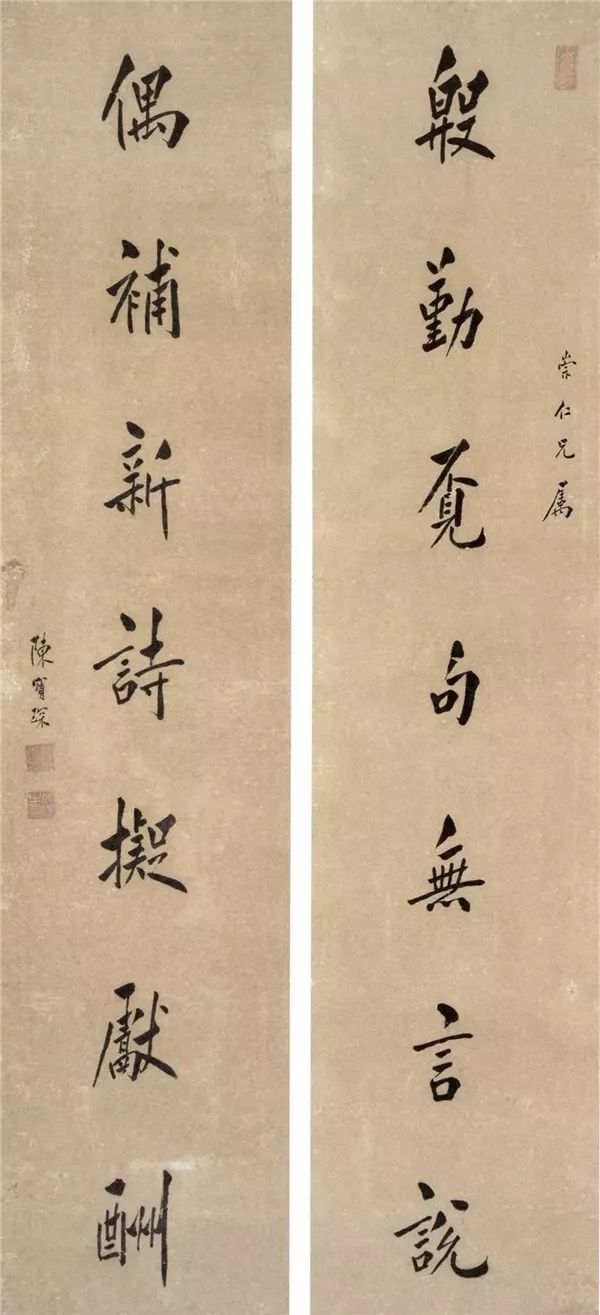 崇仁兄屬
殷勤覔句無言說
偶補新詩擬獻酬
陳寶琛